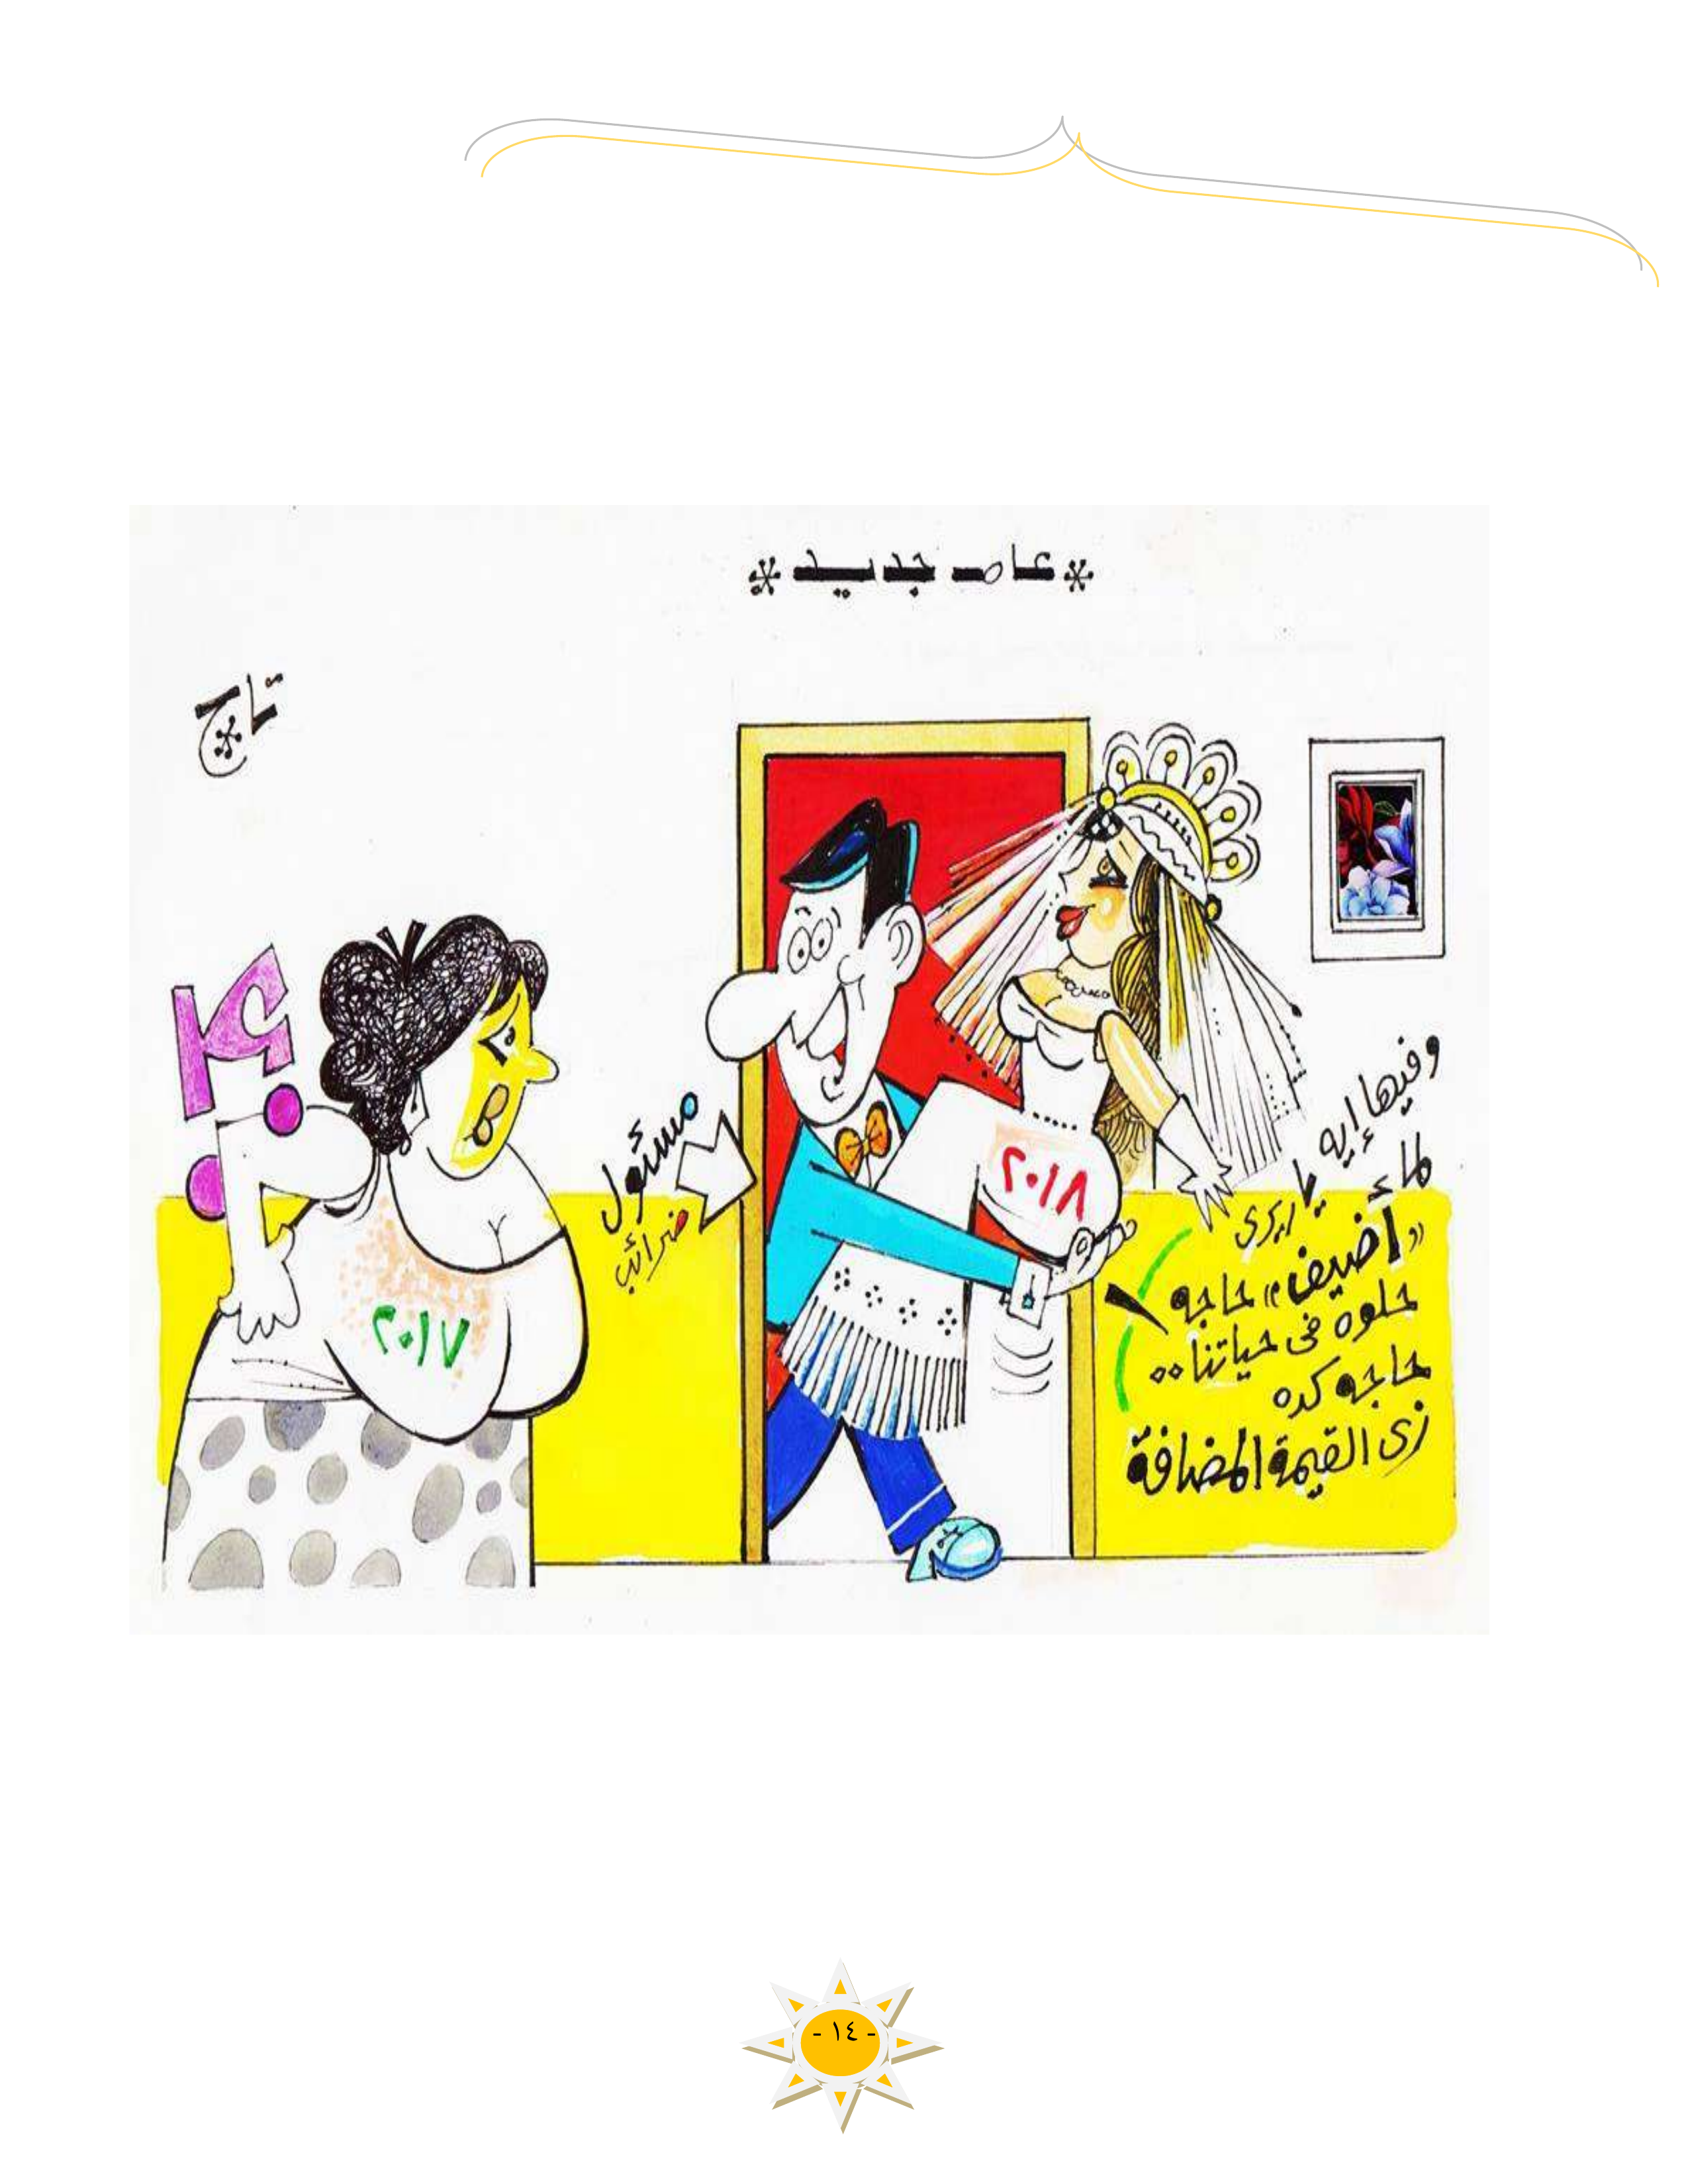 * عام جديد *
تاج
مسئول
ضرائب
٢٠١٧
٢٠١٨
وفيها إيه
لما
يا
"أضيف" حاجه
حلوه فى حياتنا..
حاجه كده
زى القيمة المضافة
- ١٤ -